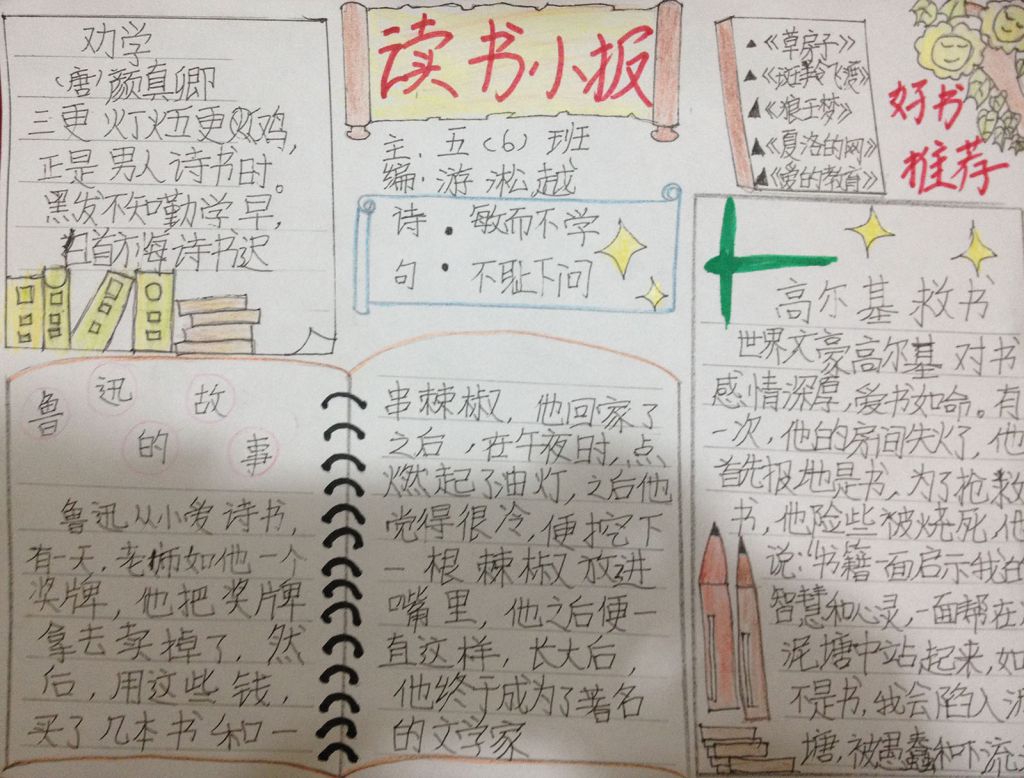 劝学
(唐)颜真卿
三更灯火五更鸡,
正是男人诗书时。
黑发不知勤学早,
白首方悔诗书迟
读书小报
主:五(6)班
编:游淞越
诗:敏而不学
句 不耻下问
▲《草房子》
▲《斑羚飞渡》
▲《狼王梦》
▲《夏洛的网》
▲《爱的教育》
好书
推荐
鲁迅故
的事
鲁迅从小爱诗书,
有一天,老师如他一个
奖牌,他把奖牌
拿去卖掉了,然
后,用这些钱,
买了几本书和一
串棘椒,他回家了
之后,在午夜时,点
燃起了油灯,之后他
觉得很冷,便挖下
一根棘椒放进
嘴里,他之后便一
直这样,长大后,
他终于成为了著名
的文学家
高尔基救书
世界文豪高尔基对书
感情深厚,爱书如命。有
一次,他的房间失火了,他
首先报地是书,为了抢救
书,他险些被烧死,他
说:"书籍一面启示我的
智慧和心灵,一面帮在
泥塘中站起来,如
不是书,我会陷入泥
塘,被愚蠢和下流